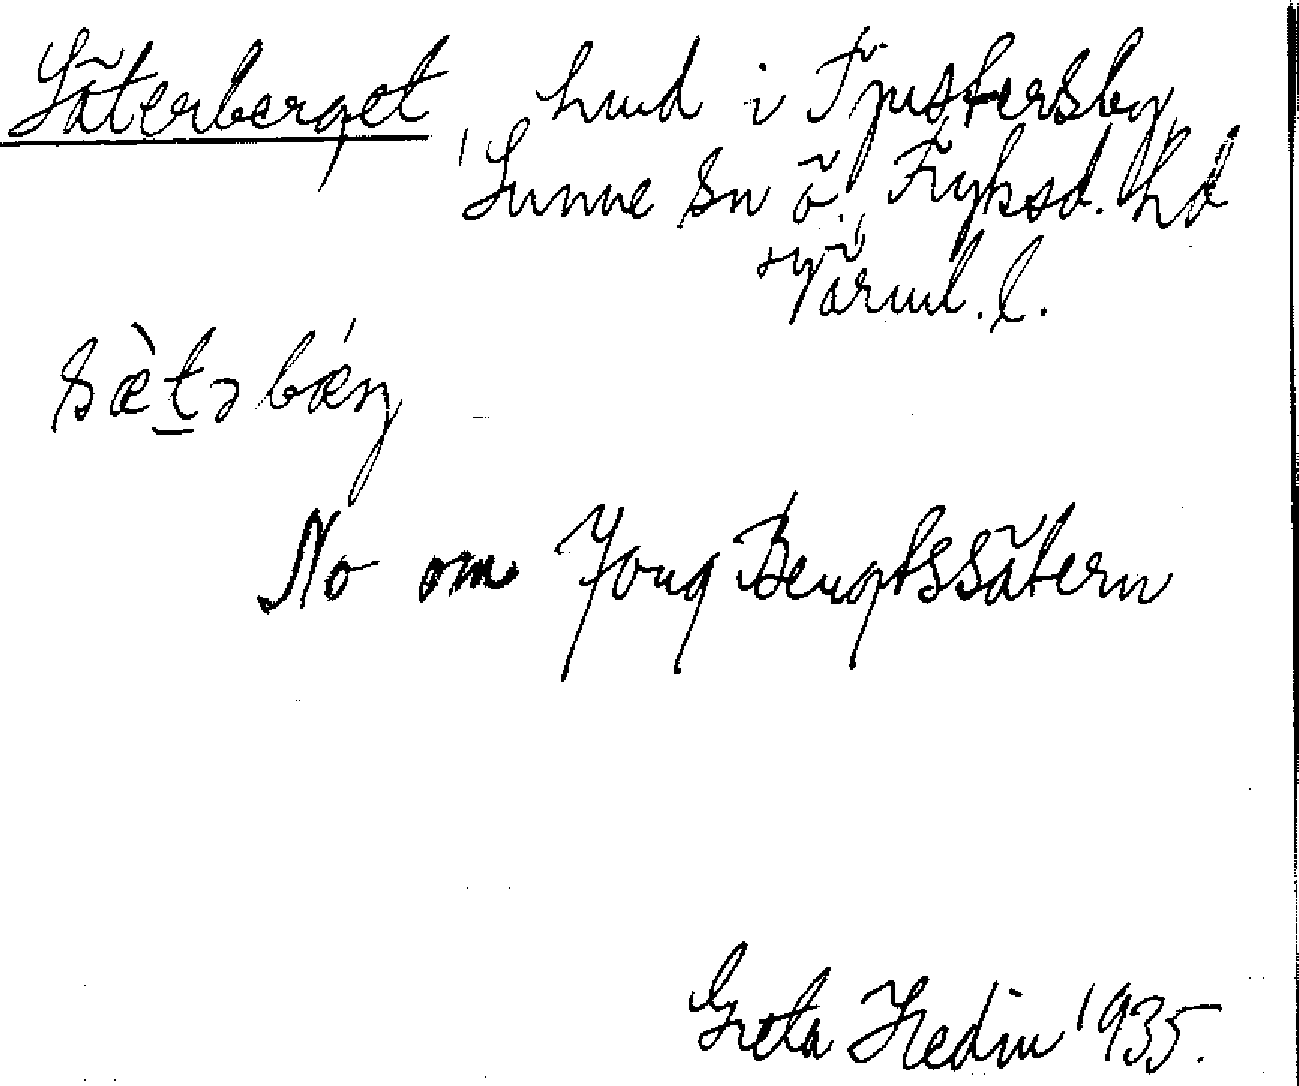 Säterberget, hmd i Tjustersby,
Sunne sn ö. Fryksd. hd
Värml. l.
sæ̀t̲ə bǽrj
No om Jong Bengtssätern
Greta Hedin 1935.